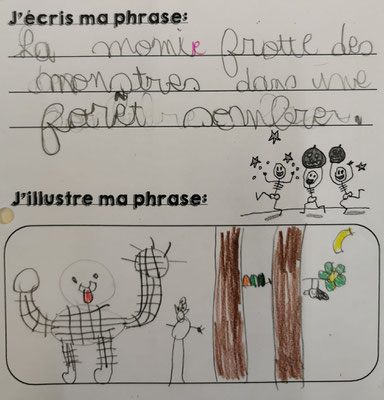 J'écris ma phrase:
La momie frotte des
monstres dans une
forêt sombre.
J'illustre ma phrase: